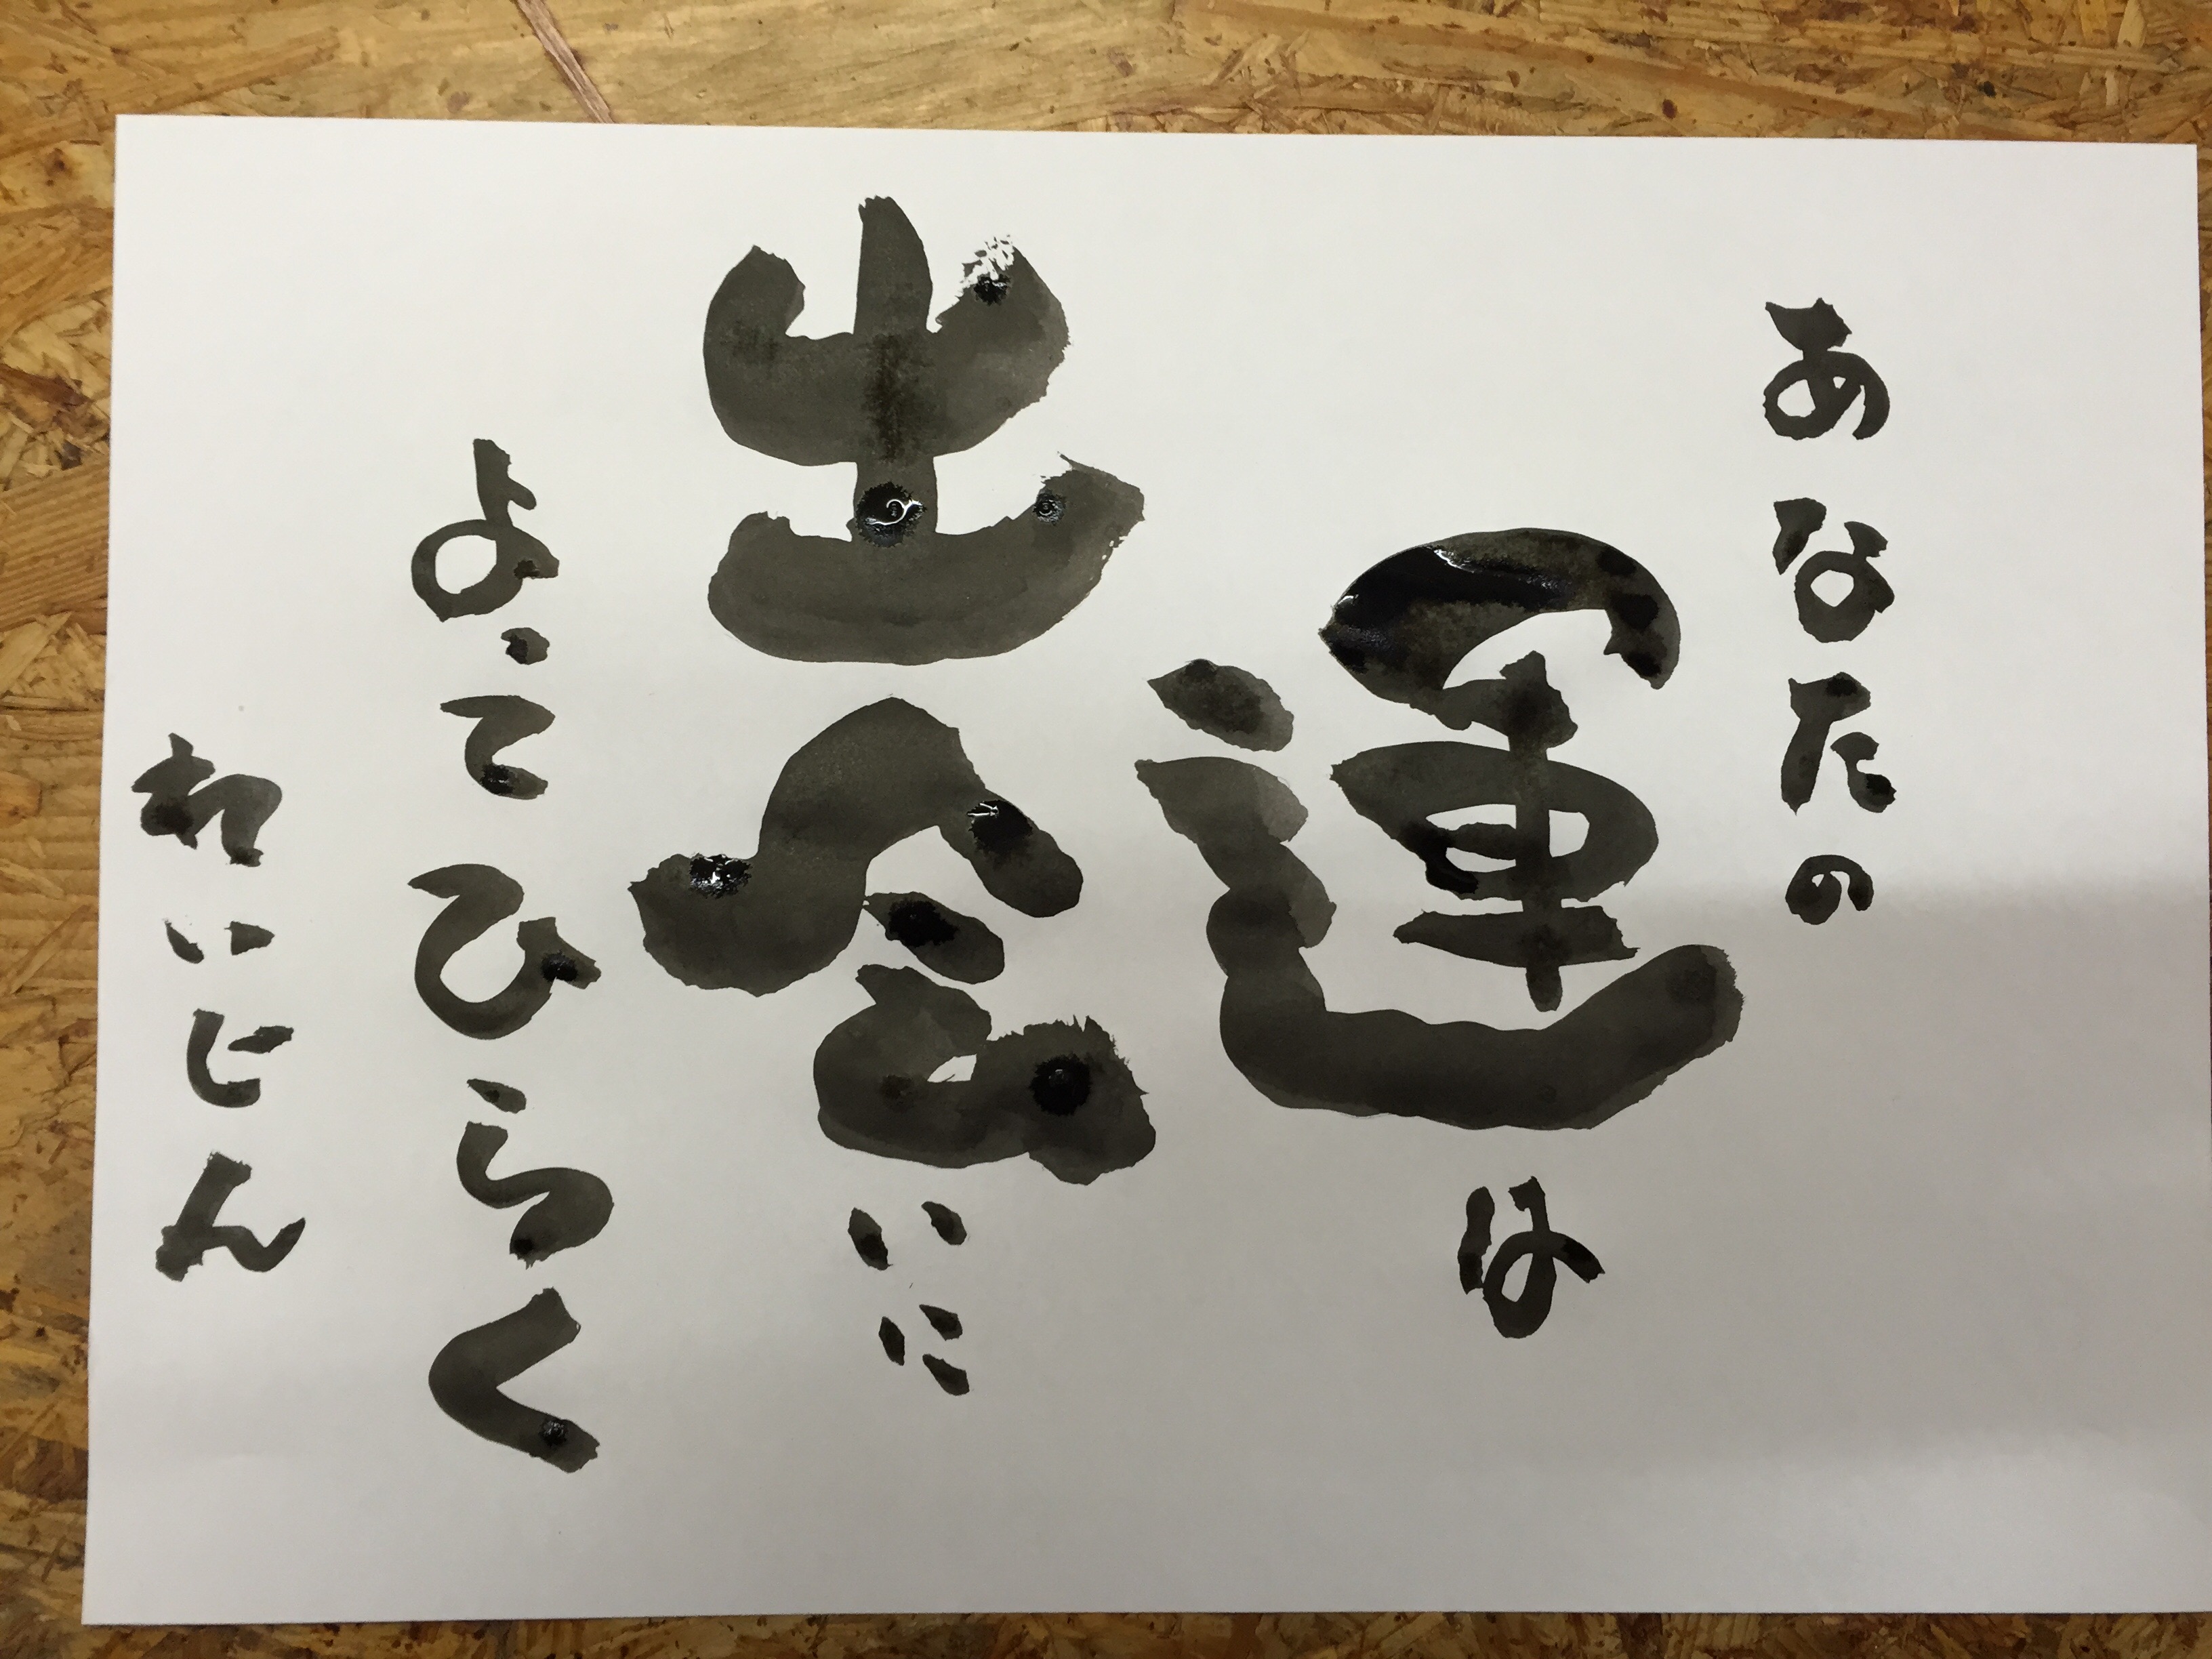 あなたの
運は
出会いに
よってひらく
れいじん